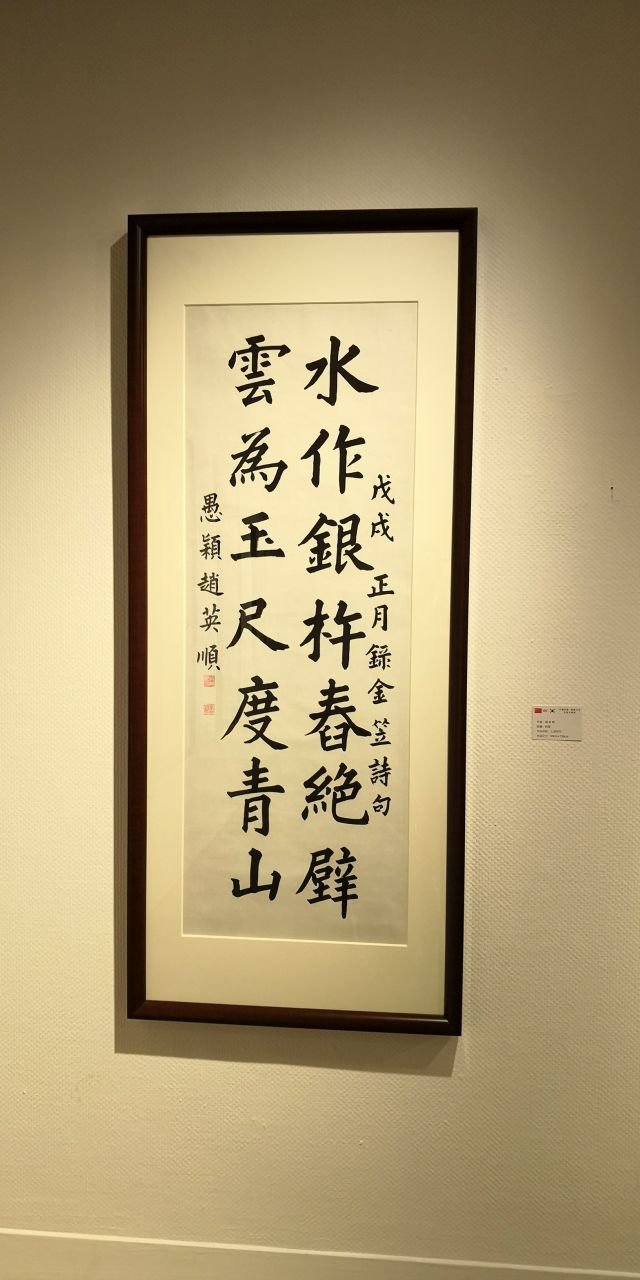 戊戌正月錄金笠詩句
水作銀杵舂絕壁
雲為玉尺度青山
愚穎趙英順